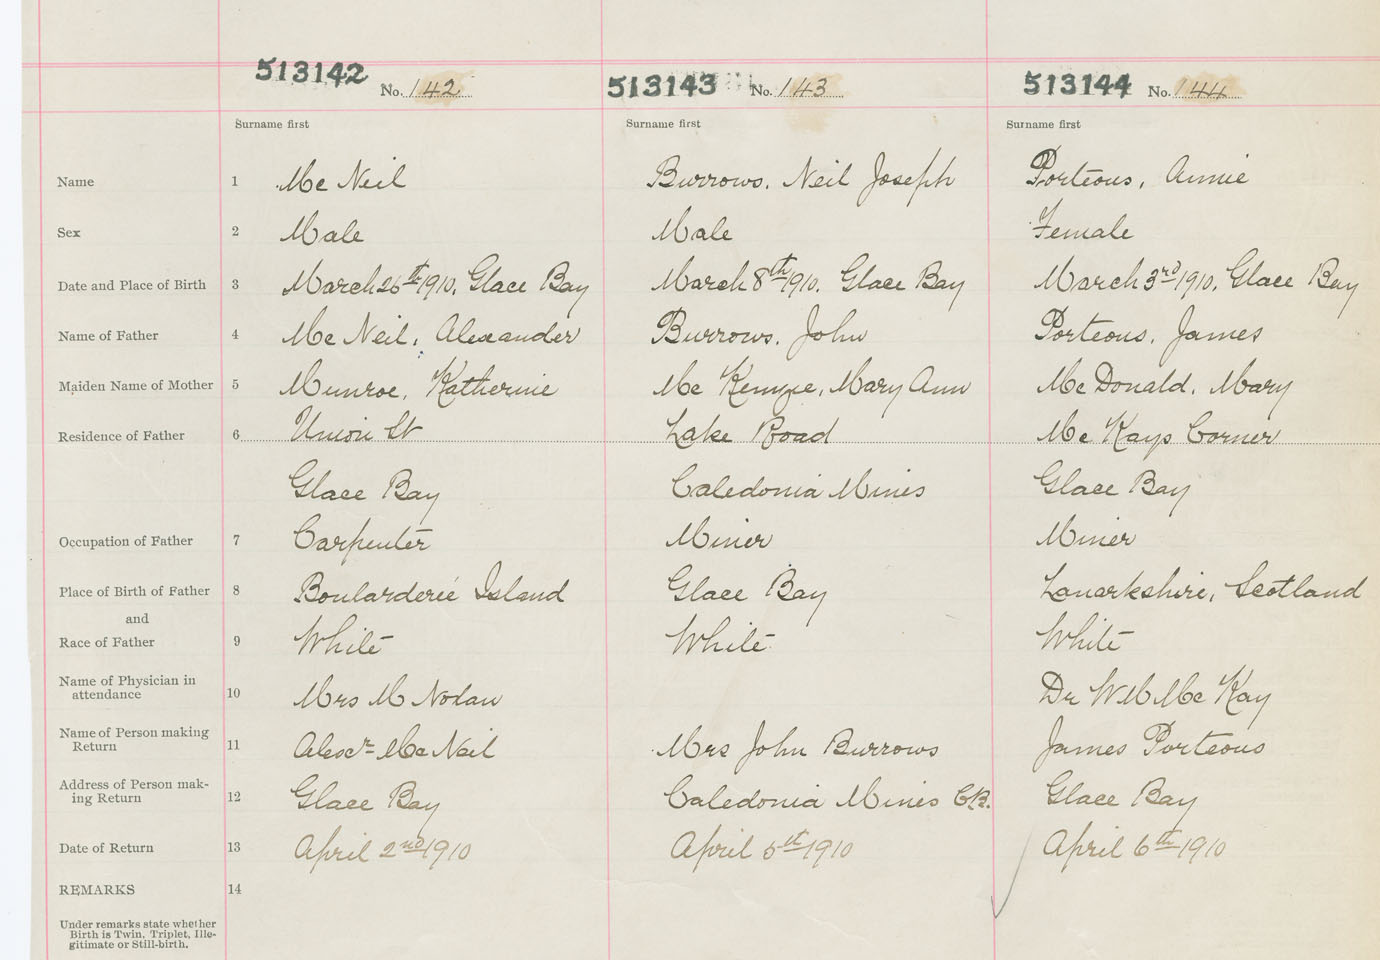 513142 No. 142 513143 No. 143 513144 No. 144
Surname first Surname first Surname first
Name 1 Mc Neil Burrows. Neil Joseph Porteous, Annie
Sex 2 Male Male Female
Date and Place of Birth 3 March 26th 1910. Glace Bay March 8th 1910. Glace Bay March 3rd 1910. Glace Bay
Name of Father 4 Mc Neil, Alexander Burrows. John Porteous. James
Maiden Name of Mother 5 Munroe, Katherine Mc Kenzie, Mary Ann Mc Donald. Mary
Residence of Father 6 Union St Lake Road Mc Kays Corner
Glace Bay Caledonia Mines Glace Bay
Occupation of Father 7 Carpenter Miner Miner
Place of Birth of Father 8 Boularderie Island Glace Bay Lanarkshire, Scotland
and
Race of Father 9 White White White
Name of Physician in
attendance 10 Mrs M Nolan Dr W M Mc Kay
Name of Person making
Return 11 Alexr Mc Neil Mrs John Burrows James Porteous
Address of Person mak-
ing Return 12 Glace Bay Caledonia Mines C.B. Glace Bay
Date of Return 13 April 2nd 1910 April 5th 1910 April 6th 1910
REMARKS 14
Under remarks state whether
Birth is Twin, Triplet, Ille-
gitimate or Still-birth.